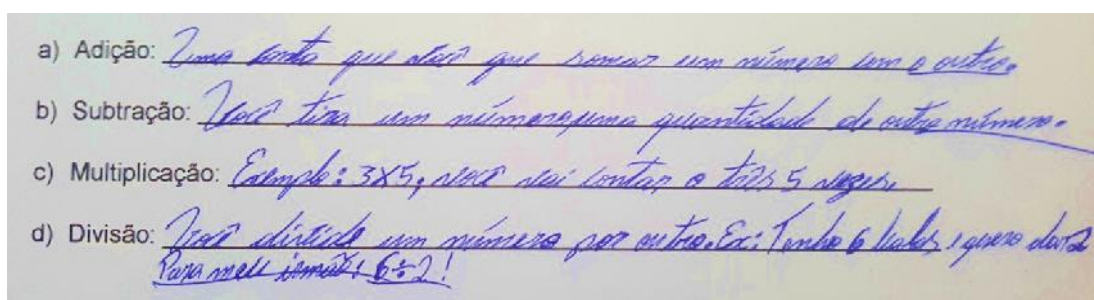 a) Adição: Uma conta que você que somar um número com o outro.
b) Subtração: Você tira um número, uma quantidade de outro número.
c) Multiplicação: Exemplo: 3X5, você vai contar o três 5 vezes.
d) Divisão: Você divide um número por outro. Ex: Tenho 6 balas, e quero dar 2
Para meu irmão: 6÷2!